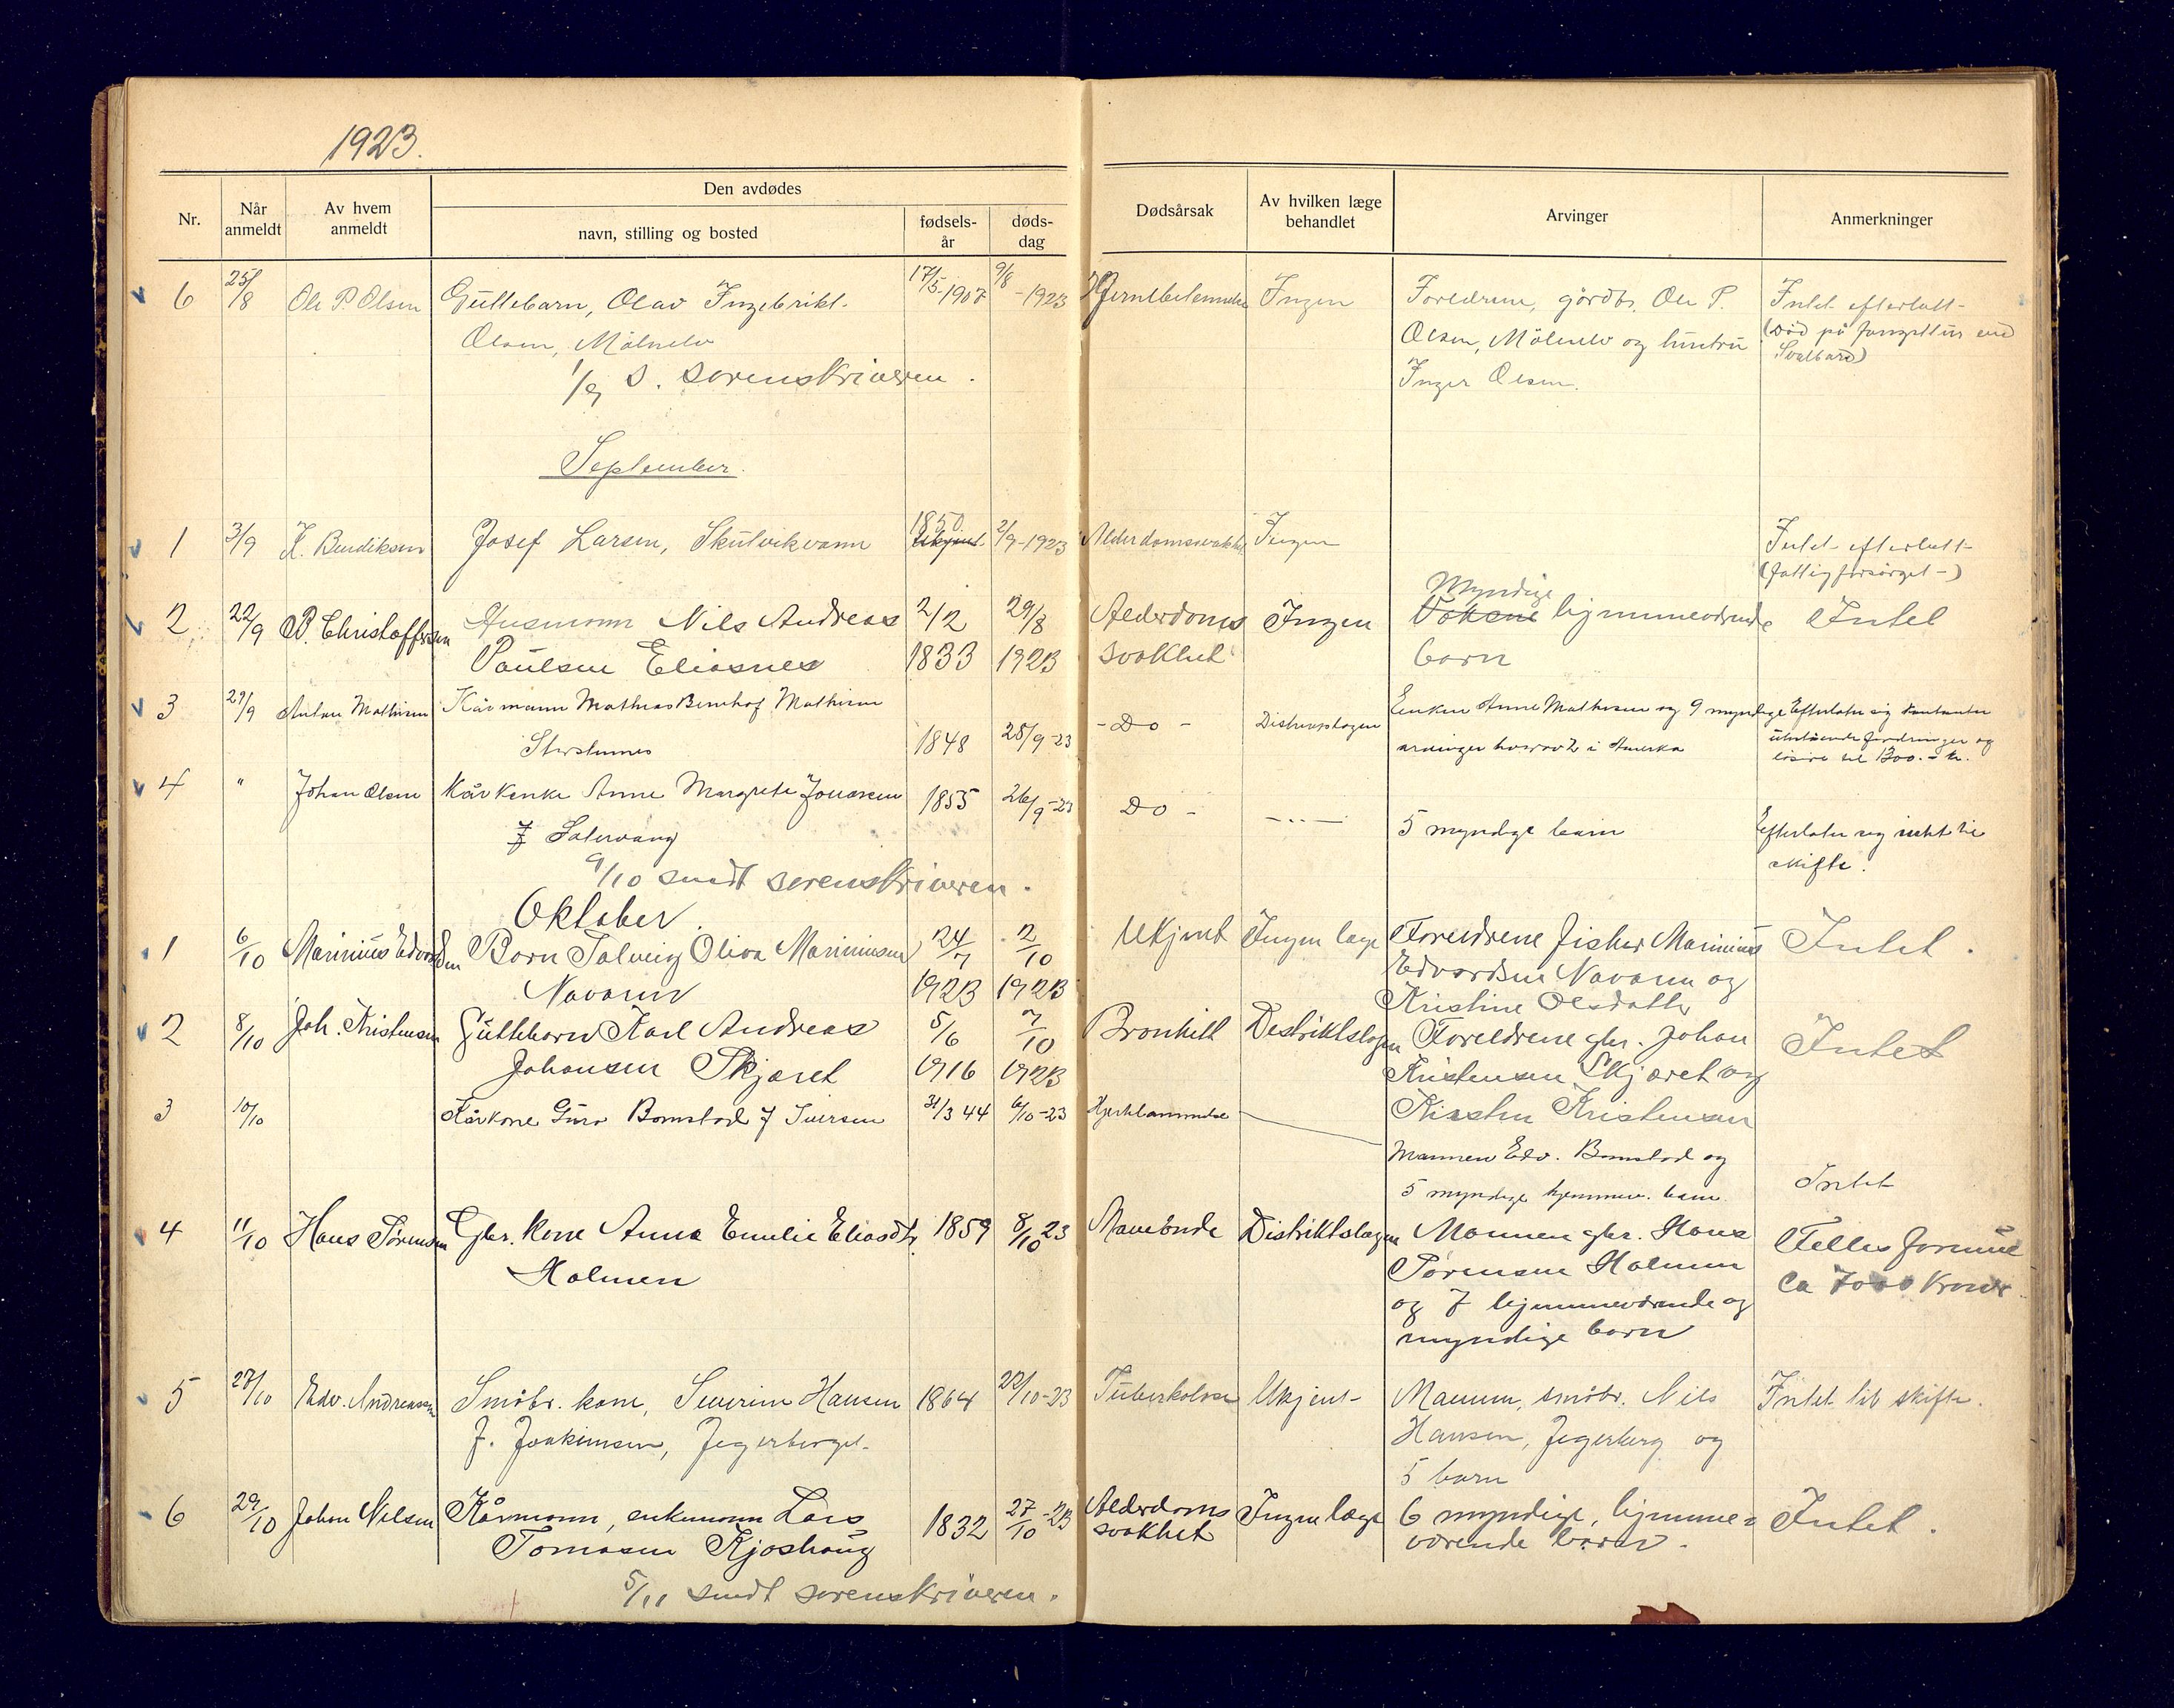 1923.
Nr.
Når anmeldt
Av hvem anmeldt
Den avdødes
navn, stilling og bosted
fødsels-år
døds-dag
Dødsårsak
Av hvilken læge behandlet
Arvinger
Anmerkninger
6 25/8 Ole P. Olsen Guttebarn, Olav Ingebrikt. 17/5-1907 9/8-1923 Ingen Foreldrene, gårdbr. Ole P. Intet efterlatt-
Olsen, Målselv Olsen, Målselv og hustru (død på fangsttur ved
1/9 s. sorenskriveren. Inger Olsen. Svalbard)
September.
1 3/9 K. Bendiksen Josef Larsen, Skutvikvann 1850 2/9-1923 Alderdomssvakhet Ingen Intet efterlatt-
ukjent (fattigforsørget-)
Myndige
2 22/9 P. Christoffersen Husmann Nils Andreas 2/2 29/8 Alderdoms Ingen Voksne hjemmeværende Intet
Paulsen Eliasnes 1833 1923 svakhet barn
3 29/9 Anton Mathisen Kårmann Mathias Mathisen Enken Anne Mathisen og 9 myndige Efterlater sig
1848 25/9-23 - Do - Distriktslægen arvinger hvorav 2 i Amerika utestående fordringer og
løsøre til 1300.- kr.
4 " Johan Olsen Kårenke Anne Margrete Jonassen 1855 26/9-23 Do - -..- 5 myndige barn Efterlater sig intet til
f skifte.
9/10 sendt sorenskriveren.
Oktober.
1 6/10 Marinius Edvardsen Barn Solveig Oliva Mariniusen 24/7 2/10 Ukjent Ingen læge Foreldrene fisker Marinius Intet.
Navaren 1923 1923 Edvardsen Navaren og
Kristine Olsdatter
2 8/10 Joh. Kristensen Guttebarn Karl Andreas 5/6 7/10 Bronkitt Destriktslægen Foreldrene gbr. Johan Intet
Johansen Skjæret 1916 1923 Kristensen Skjæret og
3 10/10 Kårkone Guro Bomstad f Iversen 31/3 44 6/10-23 Hjertelammelse Kirsten Kristensen
Mannen Edv. Bomstad og
5 myndige hjemmev. barn Intet
4 11/10 Hans Sørensen Gbr. kone Anna Emilie Eliasdtr. 1859 8/10 23 Distriktslægen Mannen gbr. Hans Felles formue
Holmen Sørensen Holmen ca 7000 kroner
og 7 hjemmeværende og
myndige barn
5 27/10 Edv. Andreassen Småbr. kone, Severine Hansen 1864 22/10-23 Tuberkolose Ukjent- Mannen, småbr. Nils Intet til skifte.
f. Joakimsen, Jegerberget. Hansen, Jegerberg og
5 barn
6 29/10 Johan Nilsen Kårmann, enkemann Lars 1832 27/10-23 Alderdoms Ingen læge 6 myndige, hjemme= Intet.
Tomasen Kjoshaug svakhet værende barn.
5/11 sendt sorenskriveren.